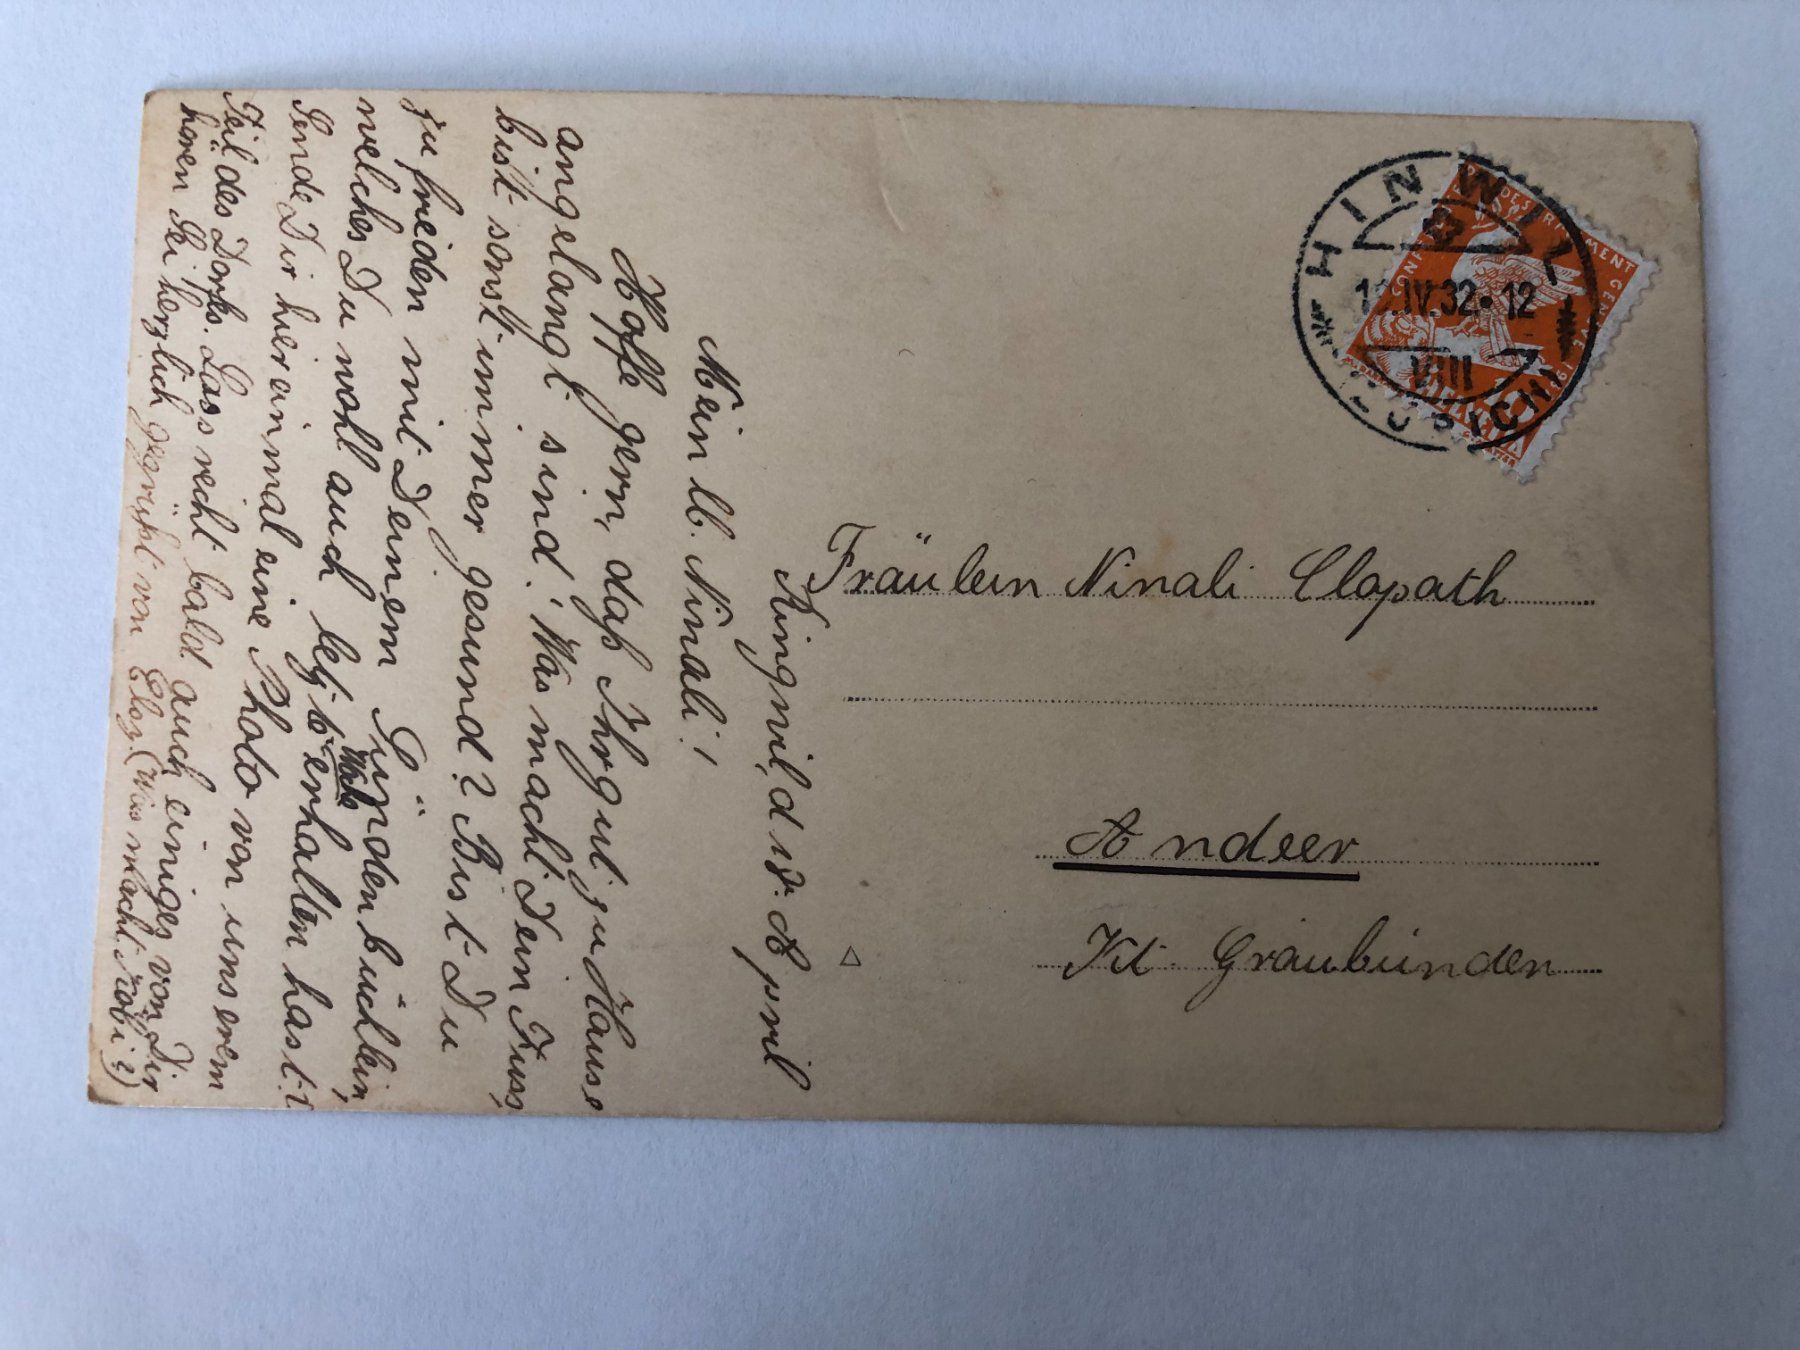 Ringwil, d 18. April
Mein lb. Ninali!
Hoffe gern, daß Ihr gut zu Hause
angelangt sind. Was macht Dein Fuss,
bist sonst immer gesund? Bist Du
zufrieden mit Deinem Sündenbüchlein,
welches Du wohl auch letzte Woche erhalten hast?
Sende Dir hier einmal eine Photo von unserem
Teil des Dorfs. Lass recht bald auch einiges von Dir
hören Sei herzlich gegrüßt von (Was macht Tobi?)
Fräulein Ninali Clopath
Andeer
Kt. Graubünden
HINWIL
IV.32.-12
VIII
CONFÉRENCE DU DÉSARMEMENT GENÈVE 1932
HELVETIA